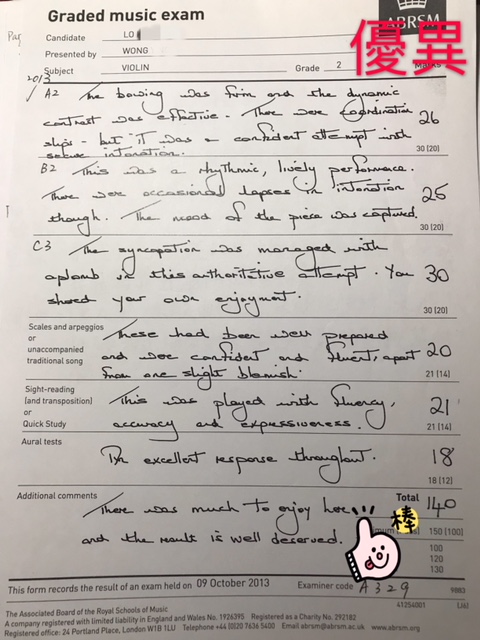 Graded music exam
ABRSM
優異
Candidate LO
Presented by WONG
Subject VIOLIN Grade 2 Marks
2013
A2 The bowing was firm and the dynamic
contrast was effective. There were coordination 26
slips - but it was a confident attempt with
secure intonation. 30 (20)
B2 This was a rhythmic, lively performance.
There were occasional lapses in intonation 25
though. The mood of the piece was captured.
30 (20)
C3 The syncopation was managed with
aplomb in this authoritative attempt. You 30
shared your own enjoyment.
30 (20)
Scales and arpeggios
or
unaccompanied
traditional song
These had been well prepared
and were confident and fluent, apart 20
from one slight blemish. 21 (14)
Sight-reading
(and transposition)
or
Quick Study
This was played with fluency, 21
accuracy and expressiveness. 21 (14)
Aural tests
An excellent response throughout. 18
18 (12)
Additional comments
Total 140
There was much to enjoy here
棒
and the result is well deserved.
150 (100)
100
120
130
This form records the result of an exam held on 09 October 2013 Examiner code A 329
9883
41254001 (J6)
The Associated Board of the Royal Schools of Music
A company registered with limited liability in England and Wales No. 1926395 Registered as a Charity No. 292182
Registered office: 24 Portland Place, London W1B 1LU Telephone +44 (0)20 7636 5400 Email abrsm@abrsm.ac.uk www.abrsm.